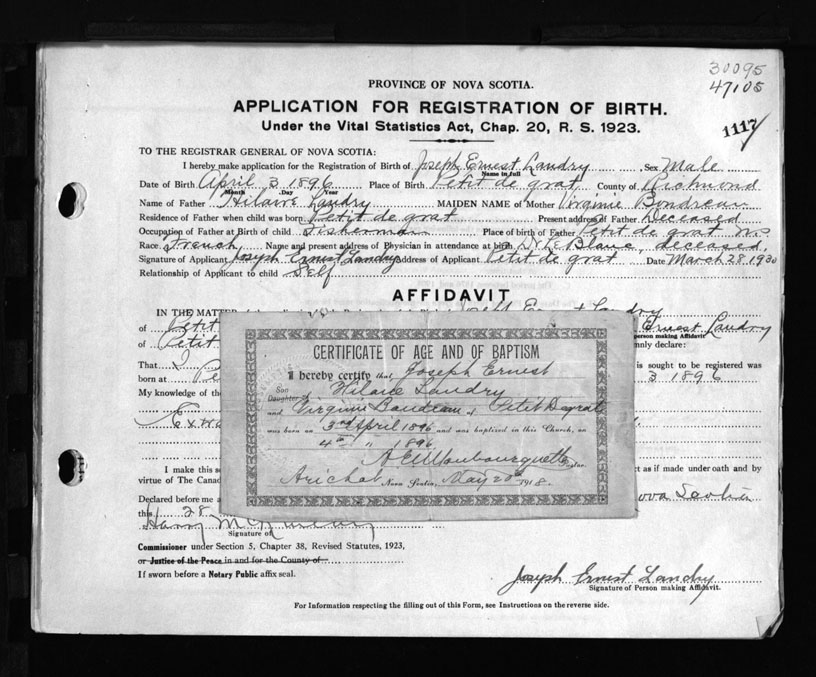 30095
47105
1117
PROVINCE OF NOVA SCOTIA.
APPLICATION FOR REGISTRATION OF BIRTH.
Under the Vital Statistics Act, Chap. 20, R. S. 1923.
TO THE REGISTRAR GENERAL OF NOVA SCOTIA:
I hereby make application for the Registration of Birth of Joseph Ernest Landry Sex Male
Name in full
Date of Birth April 3 1896 Place of Birth Petit de grat County of Richmond
Month Day Year
Name of Father Hilaire Landry MAIDEN NAME of Mother Virginie Boudreau
Residence of Father when child was born Petit de grat Present address of Father Deceased
Occupation of Father at Birth of child Fisherman Place of birth of Father Petit de grat N.S.
Race French Name and present address of Physician in attendance at birth Dr LeBlanc, deceased,
Signature of Applicant Joseph Ernest Landry Address of Applicant Petit de grat Date March 28 1930
Relationship of Applicant to child Self
AFFIDAVIT
IN THE MATTER Joseph Ernest Landry
of Petit Ernest Landry
person making Affidavit
of Petit mnly declare:
That I is sought to be registered was
born at Pe 3 1896
My knowledge of the
CERTIFICATE OF AGE AND OF BAPTISM
I hereby certify that Joseph Ernest
Son
Daughter of Hilaire Landry
and Virginie Boudreau of Petit Degrat
was born on 3rd April 1896 and was baptized in this Church, on
4th " 1896
Pastor.
Arichat Nova Scotia, May 20th 1918.
I make this so ct as if made under oath and by
virtue of The Canada
Declared before me a Nova Scotia
this 28
Signature of
Commissioner under Section 5, Chapter 38, Revised Statutes, 1923,
or Justice of the Peace in and for the County of
If sworn before a Notary Public affix seal.
Joseph Ernest Landry
Signature of Person making Affidavit.
For Information respecting the filling out of this Form, see Instructions on the reverse side.